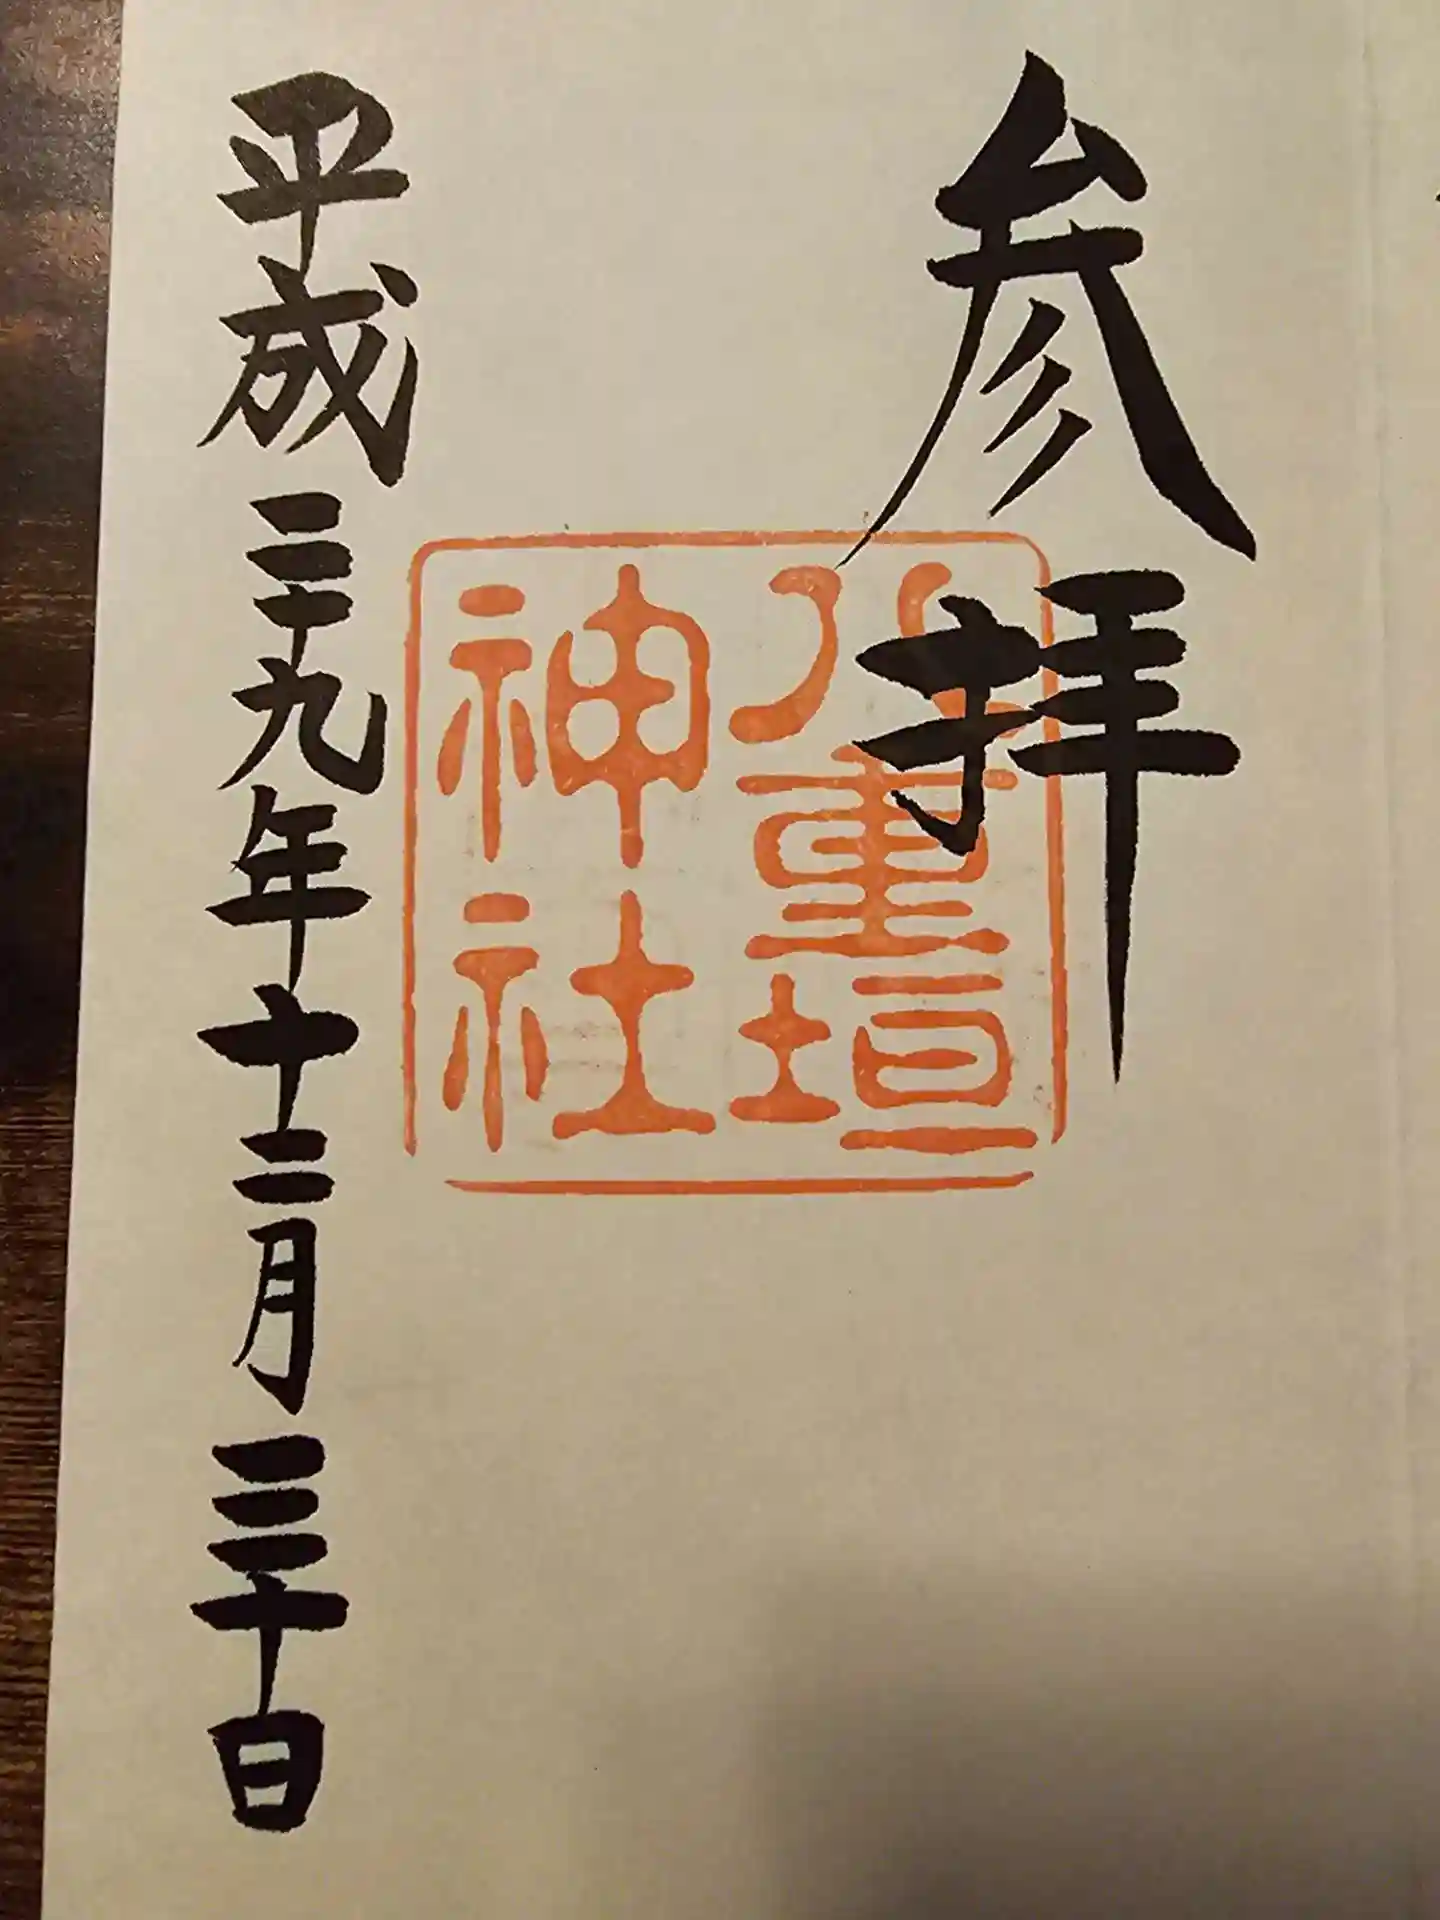 参拝
八重垣
神社
平成二十九年十二月三十日